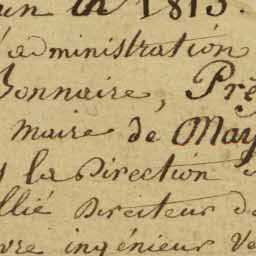 un in 1813.
l'administration
Bonnaire, Pré
maire de May
s la Direction
llié Directeur de
vre ingénieur Ve